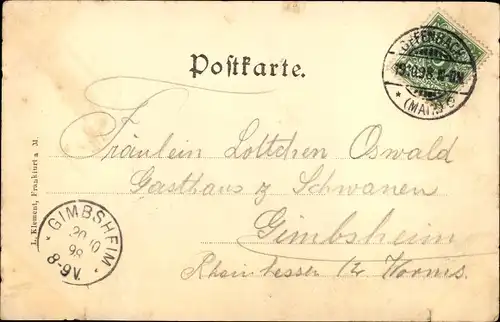 Postkarte.
OFFENBACH
19.10.98. 11-12N.
* (MAIN) *
Fräulein Lottchen Oswald
Gasthaus z Schwanen
Gimbsheim
Rheinhessen Kr. Worms.
L. Klement, Frankfurt a M.
* GIMBSHEIM *
20 10
98
8-9V.